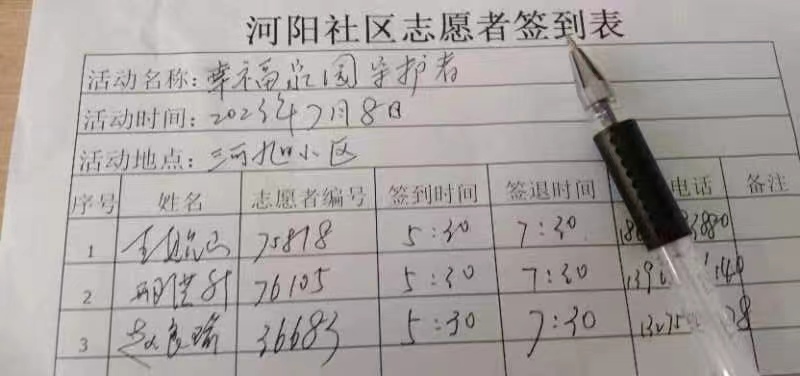 河阳社区志愿者签到表
活动名称：幸福家园守护者
活动时间：2023年7月8日
活动地点：河旭小区
序号 姓名 志愿者编号 签到时间 签退时间 电话 备注
1 75818 5:30 7:30
2 76105 5:30 7:30
3 赵良瑜 36683 5:30 7:30